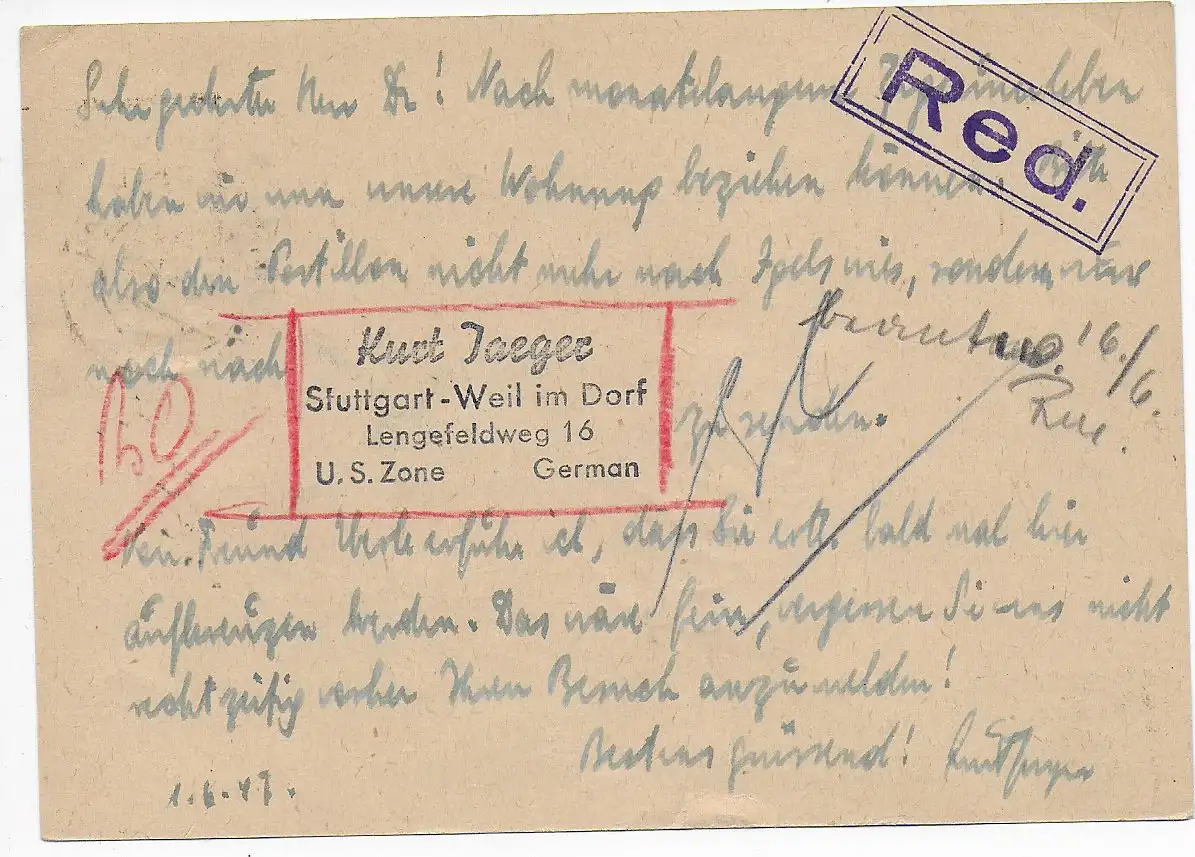 Sehr geehrter Herr Dr! Nach monatelangem Zigeunerleben
haben wir nun unsere Wohnung beziehen können. Bitte
also den Postillon nicht mehr nach, sondern nur
noch nach
Kurt Jaeger
Stuttgart-Weil im Dorf
Lengefeldweg 16
U.S. Zone German
zu senden.
Red.
beantw. 16./6.
Freund erfuhr ich, dass Sie evtl. bald mal hier
aufkreuzen werden. Das wäre fein, vergessen Sie uns nicht
rechtzeitig vorher Ihren Besuch anzumelden!
Bestens grüssend! Kurt Jaeger
1.6.47.